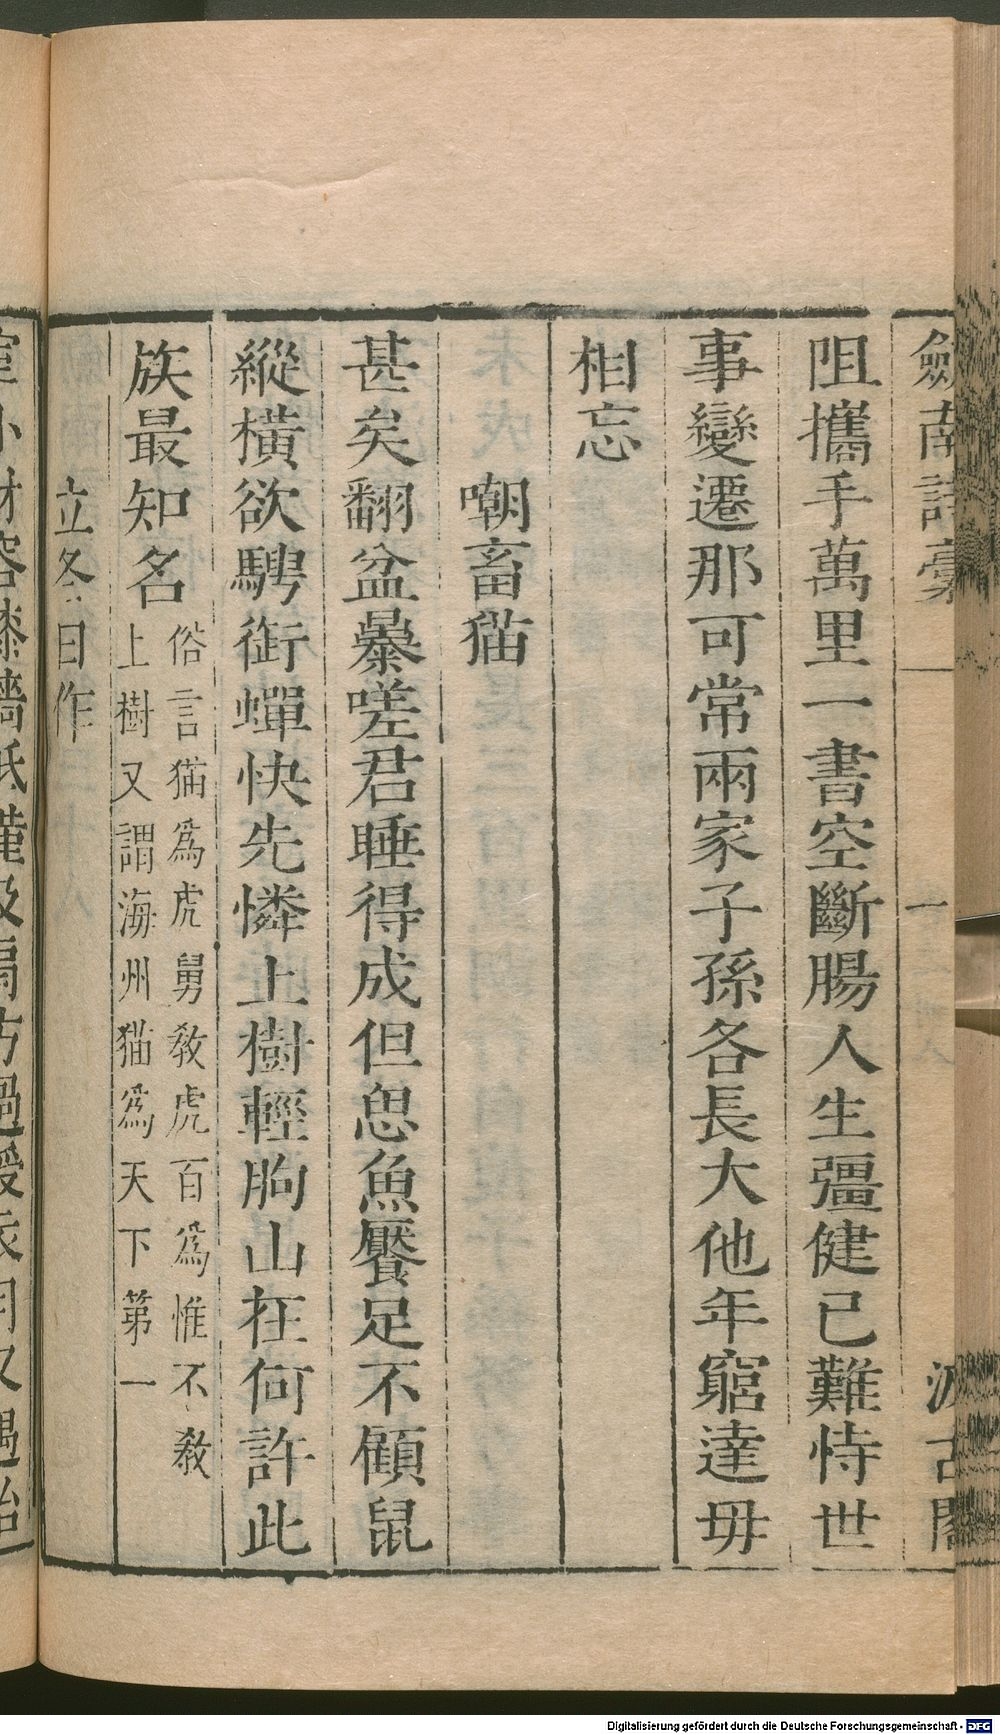 劒南詩稾
一
汲古閣
阻攜手萬里一書空斷腸人生彊健已難恃世
事變遷那可常兩家子孫各長大他年窮達毋
相忘
嘲畜猫
甚矣翻盆暴嗟君睡得成但思魚饜足不顧鼠
縱橫欲騁銜蟬快先憐上樹輕朐山在何許此
族最知名
俗言猫為虎舅教虎百為惟不教
上樹又謂海州猫為天下第一
立冬日作
Digitalisierung gefördert durch die Deutsche Forschungsgemeinschaft - DFG